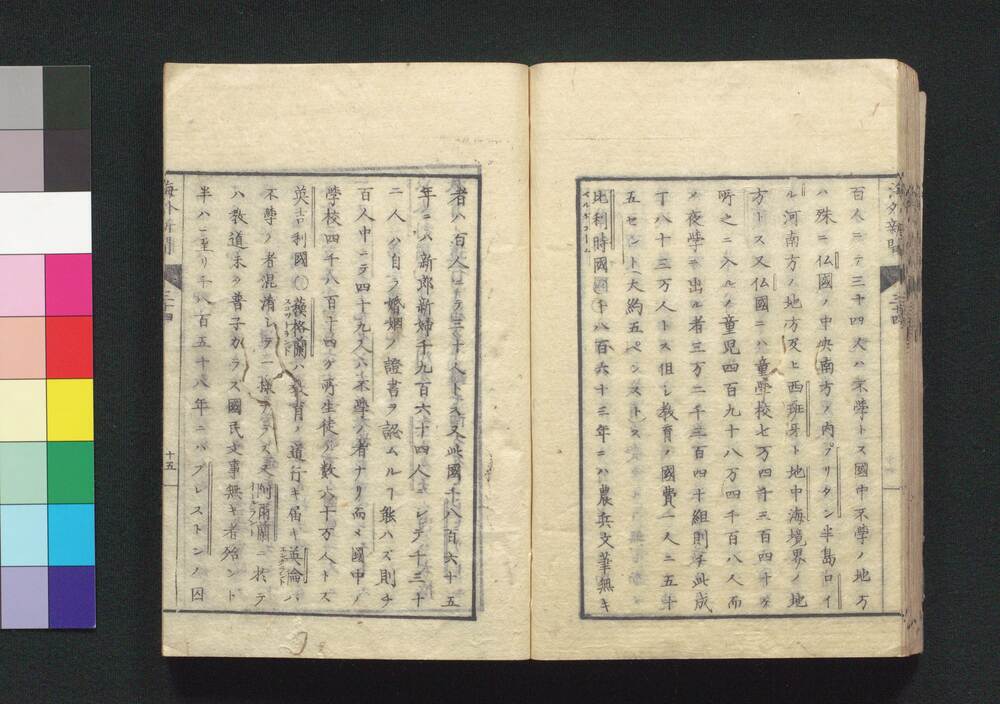 海外新聞
三十四
百人ニテ三十四人ハ不學トス國中不學ノ地方
ハ殊ニ仏國ノ中央南方ノ内プリタン半島ロイ
ル河南方ノ地方及ヒ西班牙ト地中海境界ノ地
方トス又仏國ニハ童學校七万四千三百四十ヶ
所之ニ入ルノ童児四百九十八万四千百八人而
メ夜學ニ出ル者三万二千三百四十組則チ此成
丁八十三万人トス但シ教育ノ國費一人ニ五十
五セント(大約五ペンス)トス
比利時國〇千八百六十三年ニハ農兵文筆無キ
ベルギユーム
者ハ百人ニテ三十人トス又此國千八百六十五
年ニハ新郎新婦千九百六十四人ニシテ千三十
二人ハ自ラ婚姻ノ證書ヲ認ムルヿ能ハズ則チ
百人中ニテ四十九人ハ不學ノ者ナリ而メ國中ノ
學校四千八百十四ヶ所生徒ノ數八十万人トス
英吉利國〇蘇格蘭ハ教育ノ道行キ届キ英倫ハ
スコツトランド
エングランド
不學ノ者混淆シテ一様ナラス又阿爾蘭ニ於テ
ハ教道未タ普子カラス國民文事無キ者殆ント
半ハニ至リ千八百五十八年ニハプレストンノ囚
海外新聞
三十四
十五